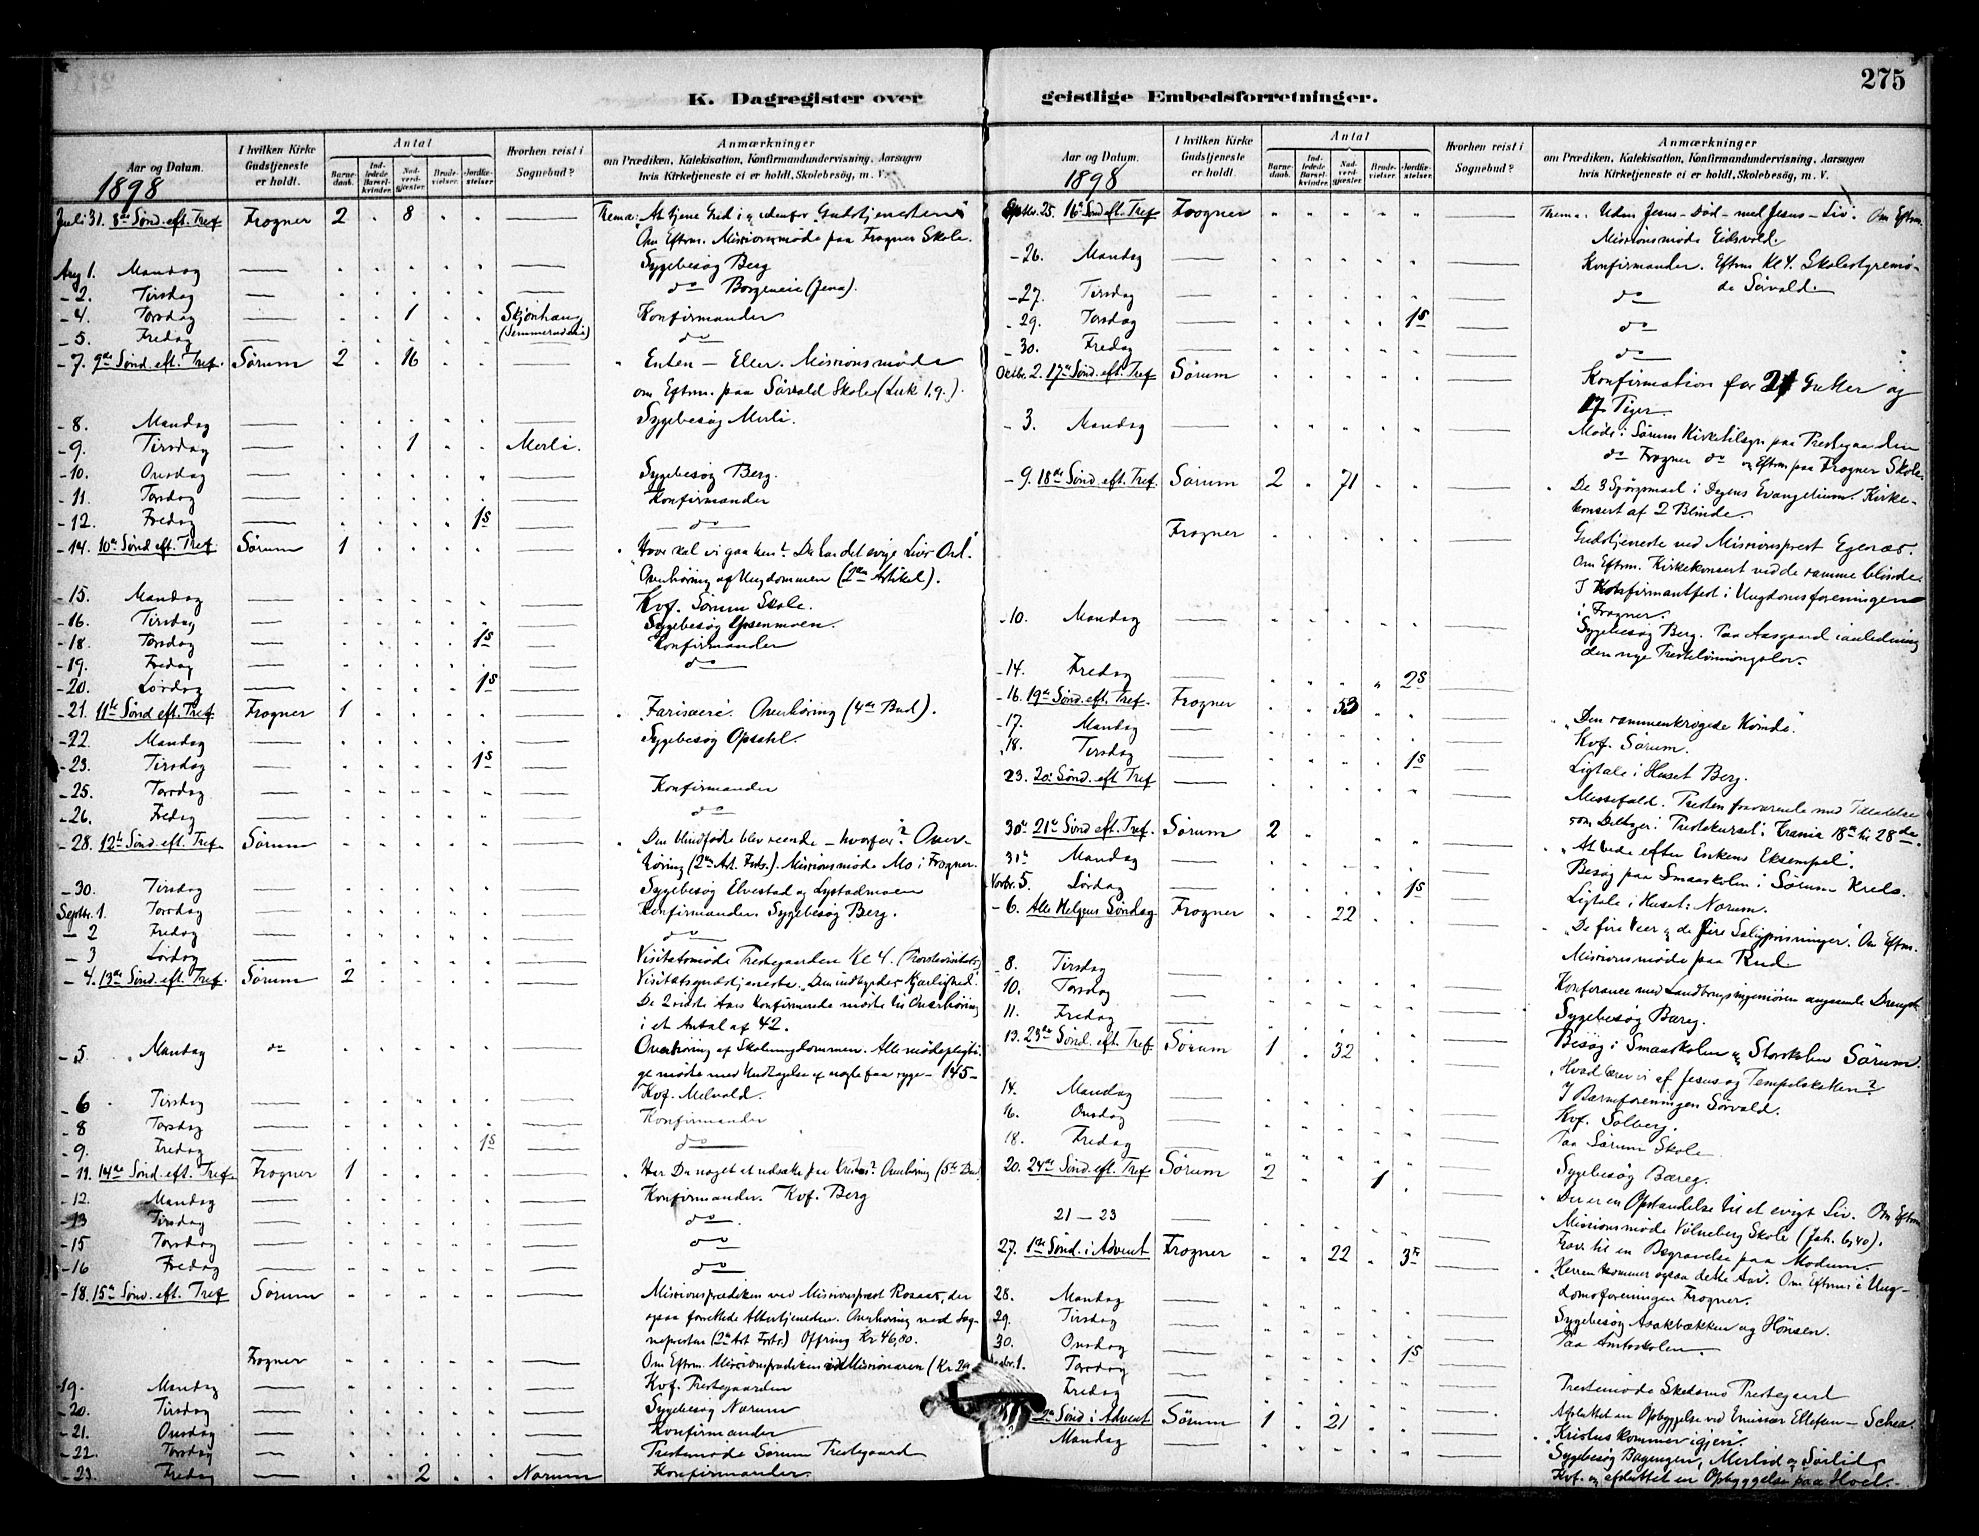 275
K. Dagregister over
geistlige Embedsforretninger.
Aar og Datum.
I hvilken Kirke Gudstjeneste er holdt.
Antal
Barnedaab.
Indledede Barselkvinder.
Nadverdgjester.
Brudevielser.
Jordfæstelser.
Hvorhen reist i Sognebud?
Anmærkninger
om Prædiken, Katekisation, Konfirmandundervisning, Aarsagen
hvis Kirketjeneste ei er holdt, Skolebesøg, m. V.
1898
Juli 31. 8de Sønd. eft. Tref Frogner 2 8 Thema: At tjene Gud i og udenfor Gudstjenesten
Om Eftrm. Missionsmøde paa Frogner Skole.
Aug 1. Mandag Sygebesøg Berg
- 2. Tirsdag do Borgeneie (Jena).
- 4. Torsdag 1 Skjønhaug Konfirmander
- 5. Fredag do
- 7. 9de Sønd. eft. Tref. Sørum 2 16 Enten - Eller. Missionsmøde
om Eftrm. paa Sørvald Skole (Luk 1,9.)
- 8. Mandag Sygebesøg Merli.
- 9. Tirsdag 1 Merli.
- 10. Onsdag Sygebesøg Berg.
- 11. Torsdag Konfirmander
- 12. Fredag 1s do
- 14. 10de Sønd eft. Tref Sørum 1 Hvor skal vi gaa hen? Du har det evige Livs Ord.
Overhøring af Ungdommen (2den Artikel).
- 15. Mandag Kvf. Sørum Skole.
- 16. Tirsdag Sygebesøg
- 18. Torsdag 1s Konfirmander
- 19. Fredag do
- 20. Lørdag 1s
- 21. 11te Sønd eft. Tref Frogner 1 Farisæeri. Overhøring (4de Bud).
- 22. Mandag Sygebesøg Opsahl.
- 23. Tirsdag 1s
- 25. Torsdag Konfirmander
- 26. Fredag do
- 28. 12te Sønd. eft. Tref. Sørum Den blindfødte blev seende - hvorfor? Over-
høring (2den Art. Forts.). Missionsmøde Mo i Frogner.
- 30. Tirsdag Sygebesøg Elvestad og Lystadmoen
Septbr. 1. Torsdag Konfirmander. Sygebesøg Berg.
- 2 Fredag do
- 3 Lørdag Visitatsmøde Prestegaarden Kl 4. (Provstevisitats)
- 4. 13de Sønd. eft. Tref. Sørum 2 Visitatsgudstjeneste. Den indbyrdes Kjærlighed.
De 2 sidste Aars Konfirmerede mødte til Overhøring
i et Antal af 42.
- 5 Mandag do Overhøring af Skoleungdommen. Alle mødepligti-
ge mødte med Undtagelse af nogle faa syge - 145 -
- 6 Tirsdag Kvf. Melvold.
- 8 Torsdag Konfirmander
- 9. Fredag 1s do
- 11. 14de Sønd. eft. Tref. Frogner 1 Har Du noget at udsætte paa Kristus? Overhøring (5te Bud)
- 12. Mandag Konfirmander. Kvf. Berg
- 13 Tirsdag do
- 15 Torsdag do
- 16 Fredag do
- 18. 15de Sønd. eft. Tref Sørum Missionsprædiken ved Missionsprest Rosaas, der
ogsaa forrettede Altertjenesten. Overhøring ved Sog-
nepresten (2den Art Forts.) Offring Kr 46,80.
Frogner Om Eftrm. Missionsprædiken ved Missionæren (Kr 29
- 19. Mandag Kvf. Prestegaarden
- 20. Tirsdag Sygebesøg Norum
- 21. Onsdag Konfirmander
- 22. Torsdag Prestemøde Sørum Prestegaard
- 23. Fredag 2 Norum Konfirmander.
Aar og Datum.
I hvilken Kirke Gudstjeneste er holdt.
Antal
Barnedaab.
Indledede Barselkvinder.
Nadverdgjester.
Brudevielser.
Jordfæstelser.
Hvorhen reist i Sognebud?
Anmærkninger
om Prædiken, Katekisation, Konfirmandundervisning, Aarsagen
hvis Kirketjeneste ei er holdt, Skolebesøg, m. V.
1898
Septbr. 25. 16de Sønd eft. Tref Frogner Thema: Uden Jesus - Død - med Jesus - Liv. Om Eftrm.
Missionsmøde Eidsvold.
- 26. Mandag Konfirmander. Eftrm Kl 4. Skolestyremø-
de Sørvald.
- 27. Tirsdag do
- 29. Torsdag 1s do
- 30. Fredag do
Oktbr. 2. 17de Sønd. eft. Tref Sørum Konfirmation for 21 Gutter og
17 Piger.
- 3. Mandag Møde i Sørum Kirketilsyn paa Prestegaarden
do Frogner do og Eftrm paa Frogner Skole.
- 9. 18de Sønd. eft. Tref. Sørum 2 71 De 3 Spørgsmaal i Dagens Evangelium. Kirke-
konsert af 2 Blinde.
Frogner Gudstjeneste ved Missionsprest Egenæs.
Om Eftrm. Kirkekonsert ved de samme blinde.
I Konfirmantfest i Ungdomsforeningen
i Frogner.
- 10. Mandag Sygebesøg Berg. Paa Aasgaard i anledning
den nye Prestelønningslov.
- 14. Fredag 2s
- 16. 19de Sønd. eft. Tref. Frogner 53 "Den sammenkrøgede Kvinde".
- 17. Mandag Kvf. Sørum.
- 18. Tirsdag 1s Ligtale i Huset Berg.
23. 20de Sønd. eft Tref Messefald. Presten fraværende med Tilladelse
som Deltager i Prestekurset i Krania 18de til 28de.
30te 21de Sønd eft. Tref. Sørum 2 "At bede efter Enkens Eksempel".
31te Mandag Besøg paa Smaaskolen i Sørum Kreds.
Novbr. 5. Lørdag 1s Ligtale i Huset: Norum.
- 6. Alle Helgens Søndag Frogner 22 De fire Veer og de fire Saligprisninger. Om Eftrm.
Missionsmøde paa Rud
- 8. Tirsdag Konferance med Landbrugsingeniøren angaaende
10. Torsdag Sygebesøg Bæreg.
11. Fredag Besøg i Smaaskolen og Storskolen Sørum.
13. 23de Sønd. eft Tref Sørum 1 32 Hvad lærer vi af Jesus og Tempelskatten?
I Barneforeningen Sørvald.
14. Mandag Kvf. Solberg.
16. Onsdag Paa Sørum Skole
18. Fredag Sygebesøg Bæreg.
20. 24de Sønd. eft Tref Sørum 2 1 Der er en Opstandelse til et evigt Liv. Om Eftrm
Missionsmøde Vølneberg Skole (Joh. 6,40).
21 - 23 Reise til en Begravelse paa Modum.
27. 1ste Sønd. i Advent Frogner 22 3s Herren kommer ogsaa dette Aar. Om Eftrm i Ung-
domsforeningen Frogner.
28. Mandag Sygebesøg Asakbækken og Hønsen.
29. Tirsdag Paa Amtsskolen.
30. Onsdag 1s
1. Torsdag Prestemøde Skedsmo Prestegaard
Fredag Afsluttet en Opbyggelse ved Emissær Ellefsen
2den Sønd i Advent Sørum 1 21 "Kristus kommer igjen".
Mandag Sygebesøg Merlid og Sørlid
Kvf. og afsluttet en Opbyggelse paa Hoel.